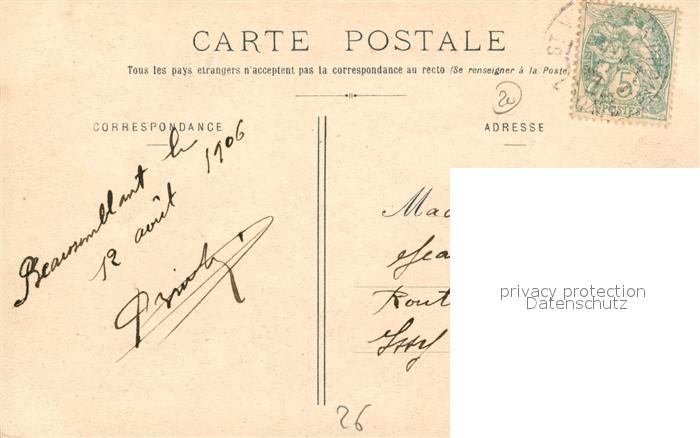 CARTE POSTALE
Tous les pays etrangers n'acceptent pas la correspondance au recto (Se renseigner à la Poste)
20
CORRESPONDANCE
ADRESSE
Beausemblant le
12 août 1906
Mad
Jea
Rout
Issy
privacy protection
Datenschutz
5c
POSTES
26